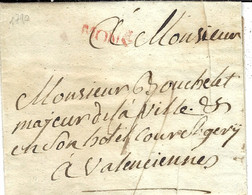 1790
MONS
A Monsieur
Monsieur Bouchelet
majeur de la Ville &
en son hotel cour &
à Valenciennes